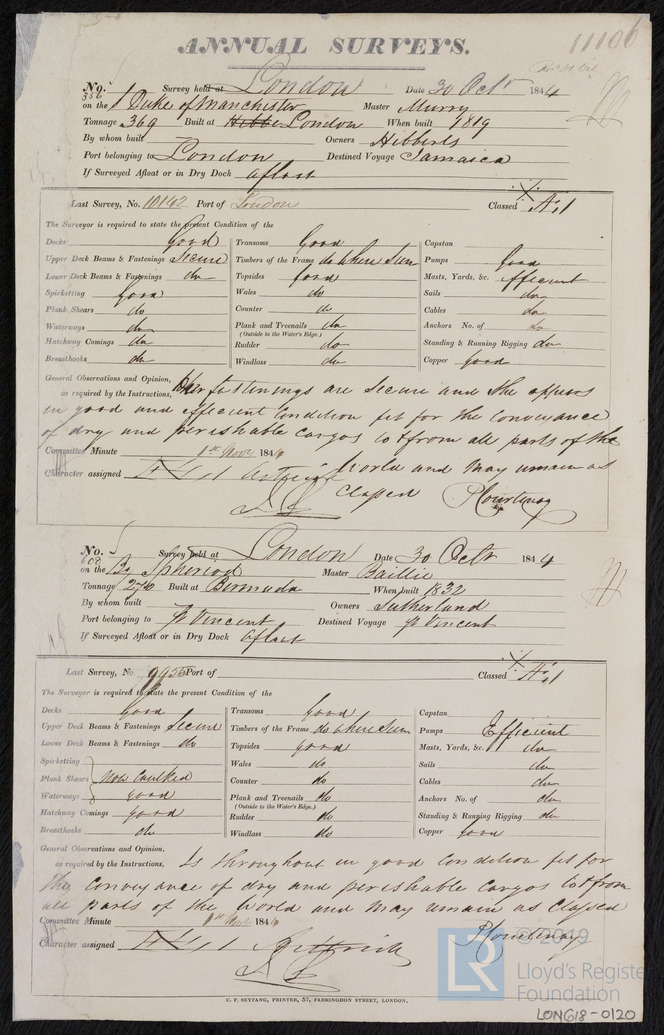 ANNUAL SURVEYS.
11106
No. 556 Survey held at London Date 30 Octr 1844
on the Duke of Manchester Master Murry
Tonnage 369 Built at London When built 1819
By whom built Owners Hibberts
Port belonging to London Destined Voyage Jamaica
If Surveyed Afloat or in Dry Dock afloat
Last Survey, No. 10142 Port of London Classed A1
The Surveyor is required to state the present Condition of the
Decks Good Transoms Good Capstan
Upper Deck Beams & Fastenings Secure Timbers of the Frame do where seen Pumps Good
Lower Deck Beams & Fastenings do Topsides Good Masts, Yards, &c. Efficient
Spirketting Good Wales do Sails do
Plank Shears do Counter do Cables do
Waterways do Plank and Treenails do Anchors No. of do
(Outside to the Water's Edge.)
Hatchway Comings do Rudder do Standing & Running Rigging do
Breasthooks do Windlass do Copper Good
General Observations and Opinion, Her fastenings are secure and she appears
as required by the Instructions,
in good and efficient Condition fit for the Conveyance
of dry and perishable cargos to & from all parts of the
Committee Minute 1st Novr 1844
World and may remain as
Character assigned
Classed P Courtenay
No. 608 Survey held at London Date 30 Octr 1844
on the Bg Spheriod Master Baillie
Tonnage 276 Built at Bermuda When built 1832
By whom built Owners Sutherland
Port belonging to St Vincent Destined Voyage St Vincent
If Surveyed Afloat or in Dry Dock afloat
Last Survey, No. 9956 Port of Classed A1
The Surveyor is required to state the present Condition of the
Decks Good Transoms Good Capstan
Upper Deck Beams & Fastenings Secure Timbers of the Frame do where seen Pumps Efficient
Lower Deck Beams & Fastenings do Topsides Good Masts, Yards, &c. do
Spirketting Wales do Sails do
Plank Shears Now Caulked Counter do Cables do
Waterways & good Plank and Treenails do Anchors No. of do
(Outside to the Water's Edge.)
Hatchway Comings good Rudder do Standing & Running Rigging do
Breasthooks do Windlass do Copper Good
General Observations and Opinion,
as required by the Instructions, Is throughout in good condition fit for
the Conveyance of dry and perishable cargos to & from
all parts of the World and may remain as Classed
Committee Minute 1st Novr 1844
P Courtenay
Character assigned
C. F. SEYFANG, PRINTER, 57, FARRINGDON STREET, LONDON.
© 2019
LR
Lloyd's Register
Foundation
LON618-0120